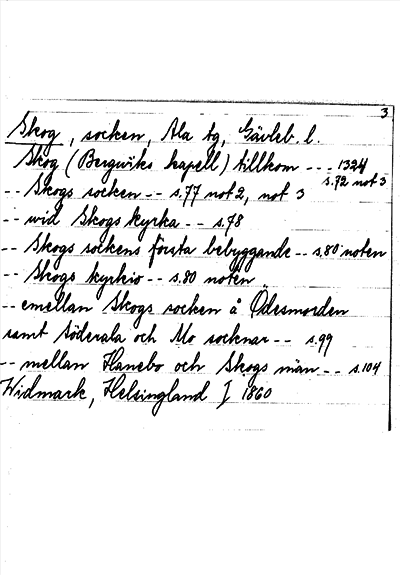 3
Skog, socken, Ala tg, Gävleb. l.
Skog (Bergwiks kapell) tillkom --- 1324
s.72 not 3
-- Skogs socken -- s.77 not 2, not 3
-- wid Skogs kyrka -- s.78
-- Skogs sockens första bebyggande -- s.80 noten
-- Skogs kyrkio -- s.80 noten
-- emellan Skogs socken å Ödesmorden
samt Söderala och Mo socknar -- s.99
-- mellan Hanebo och Skogs män -- s.104
Widmark, Helsingland I 1860